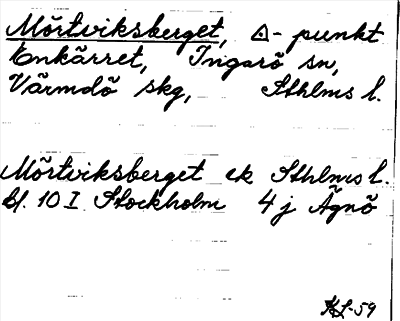 Mörtviksberget, △- punkt
Enkärret, Ingarö sn,
Värmdö skg, Sthlms l.
Mörtviksberget ek Sthlms l.
bl. 10 I Stockholm 4 j Ägnö
KL-59